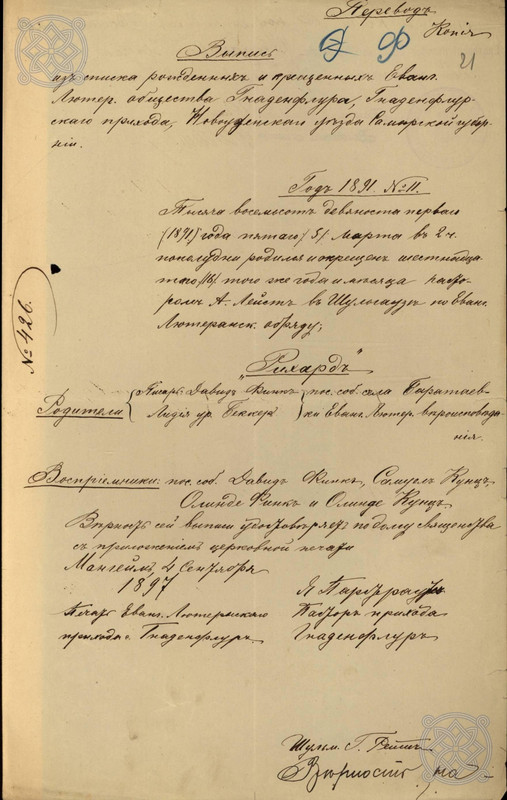 Переводъ
Копія
21
Выпись
изъ списка рожденныхъ и крещенныхъ Еванг.
Лютер. общества Гнаденфлура, Гнаденфлур-
скаго прихода, Новоузенскаго уѣзда Самарской губер-
ніи.
Годъ 1891 № 11.
Тысяча восемьсотъ девяноста перваго
(1891) года пятаго (5) Марта въ 2 ч.
пополудни родился и крещенъ шестнадца-
таго (16) того же года и мѣсяца пасто-
ромъ А. Лейстъ въ Шульгаузѣ по Еванг.
Лютеранск. обряду;
№ 426.
"Рихардъ"
Родители
Писарь Давидъ Финкъ
Лидія ур. Беккеръ
пос. соб. села Паратаев-
ки Еванг. Лютер. вѣроисповѣда-
нія.
Воспріемники: пос. соб. Давидъ Финкъ, Самуелъ Кунцъ,
Олинде Финкъ и Олинде Кунцъ
Вѣрность сей выписи удостовѣряетъ по долгу священства
съ приложеніемъ церковной печати
Мангеймъ, 4 Сентября
1897
Печать Еванг. Лютеранскаго
прихода Гнаденфлуръ
Пасторъ прихода
Гнаденфлуръ
Шульм. Г.